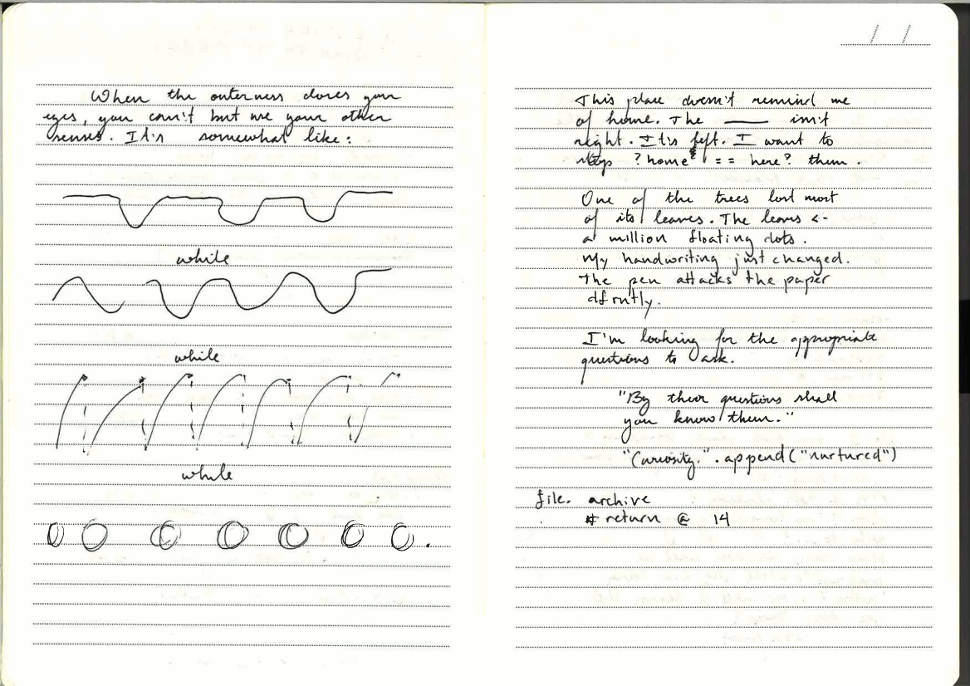 When the outerness closes your
eyes, you can't but use your other
senses. It's somewhat like:
while
while
while
/ /
This place doesn't remind me
of home. The ____ isn't
right. It's left. I want to
? home == here? them.
One of the trees lost most
of its leaves. The leaves <-
a million floating dots.
My handwriting just changed.
The pen attacks the paper
dfrntly.
I'm looking for the appropriate
questions to ask.
"By their questions shall
you know them."
"Curiosity.".append("nurtured")
file. archive
# return @ 14